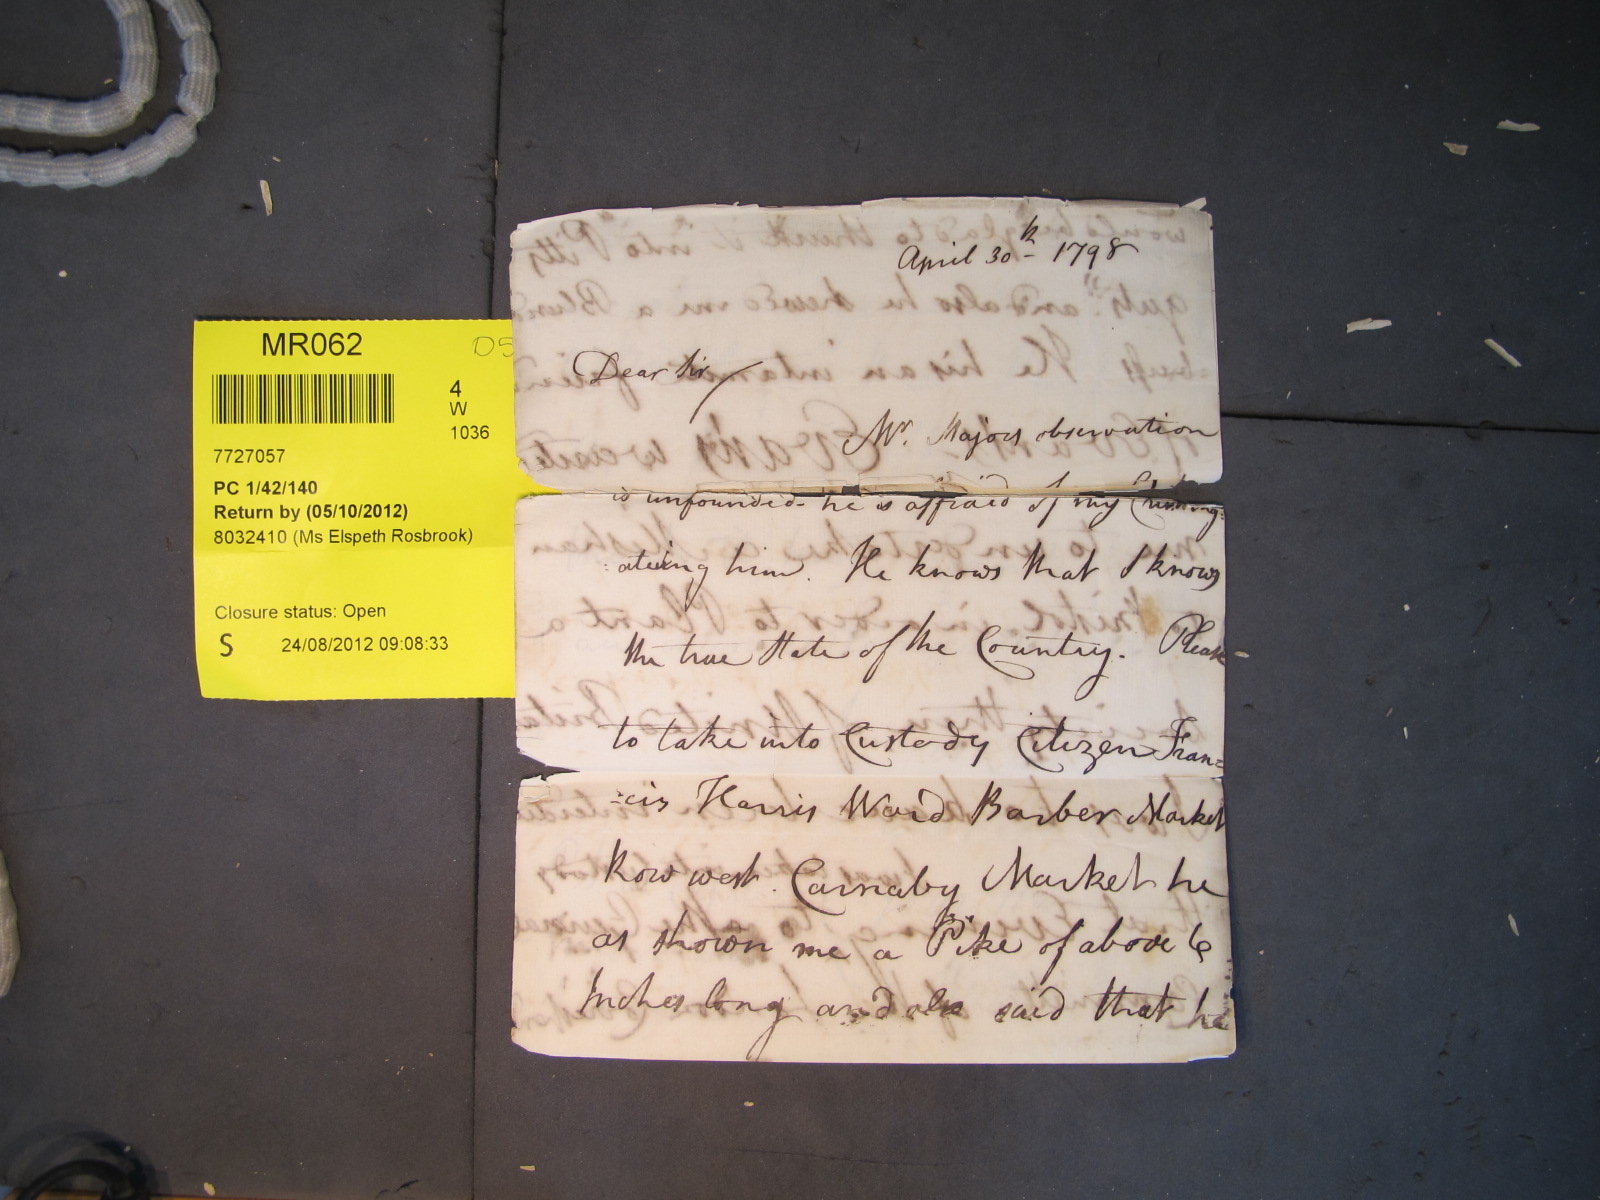 MR062
D5
4
W
1036
7727057
PC 1/42/140
Return by (05/10/2012)
8032410 (Ms Elspeth Rosbrook)
Closure status: Open
S 24/08/2012 09:08:33
April 30th 1798
Dear Sir
Mr. Majors observation
is unfounded he is affraid of my
:ating him. He knows that I knows
the true State of the Country. Please
to take into Custody Citizen Fran=
=cis Harris Ward Barber Market
Row west. Carnaby Market he
as shown me a Pike of above 6
Inches long and also said that he